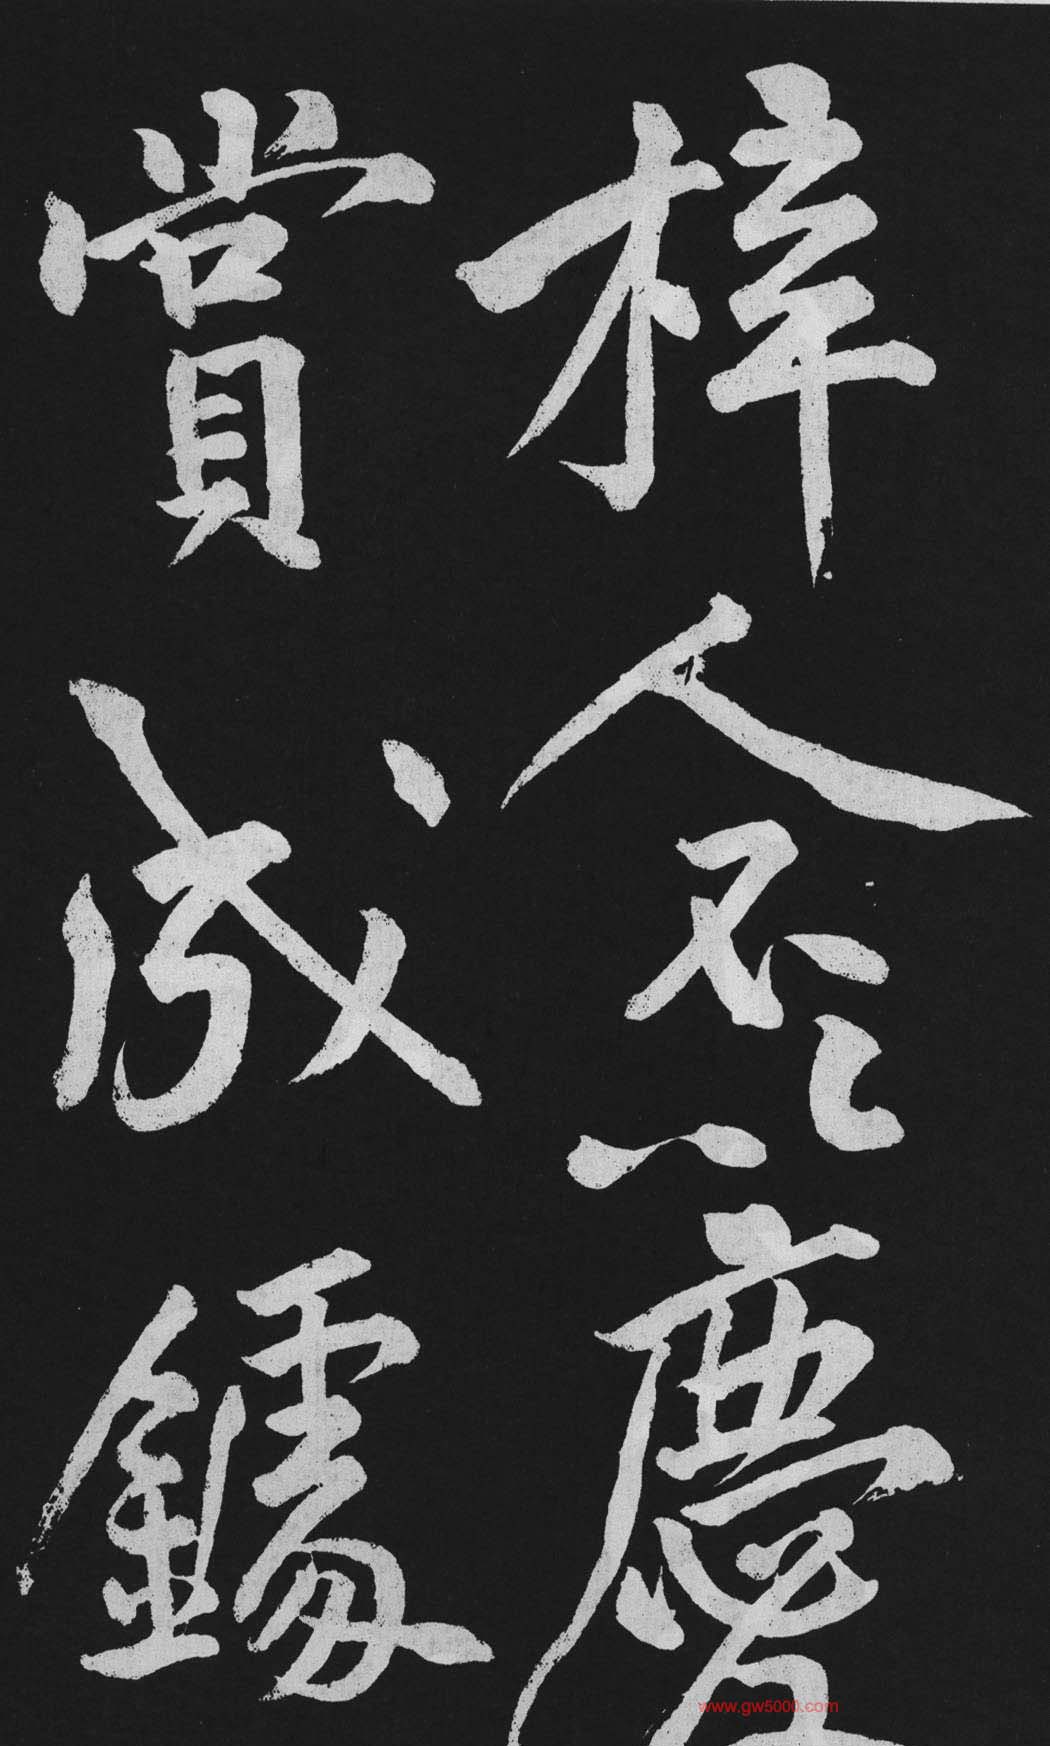 梓人不以慶
賞成鐻
www.gw5000.com